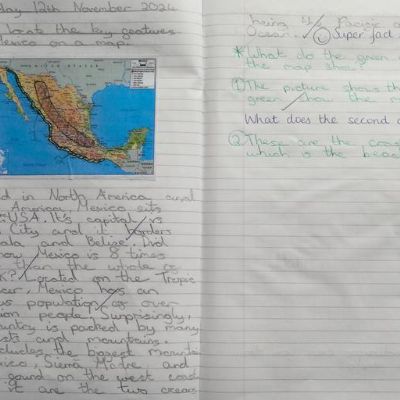 day 12th November 2024
locate the key features
Mexico on a map.
d in North America and
America, Mexico sits
USA. It's capital is
City and it borders
ala and Belize. Did
now Mexico is 8 times
than the whole of
K? Located on the Tropic
cer, Mexico has an
us population of over
ion people. Surprisingly,
ountry is packed by many
sts and mountains.
cludes the biggest mountain
xico, Sierra Madre and
gound on the west coast
it are the two oceans
being Pacific a
Ocean. Super fact
*What do the green
the map show.
①The picture shows th
green show the m
What does the second
②These are the coas
which is the beac